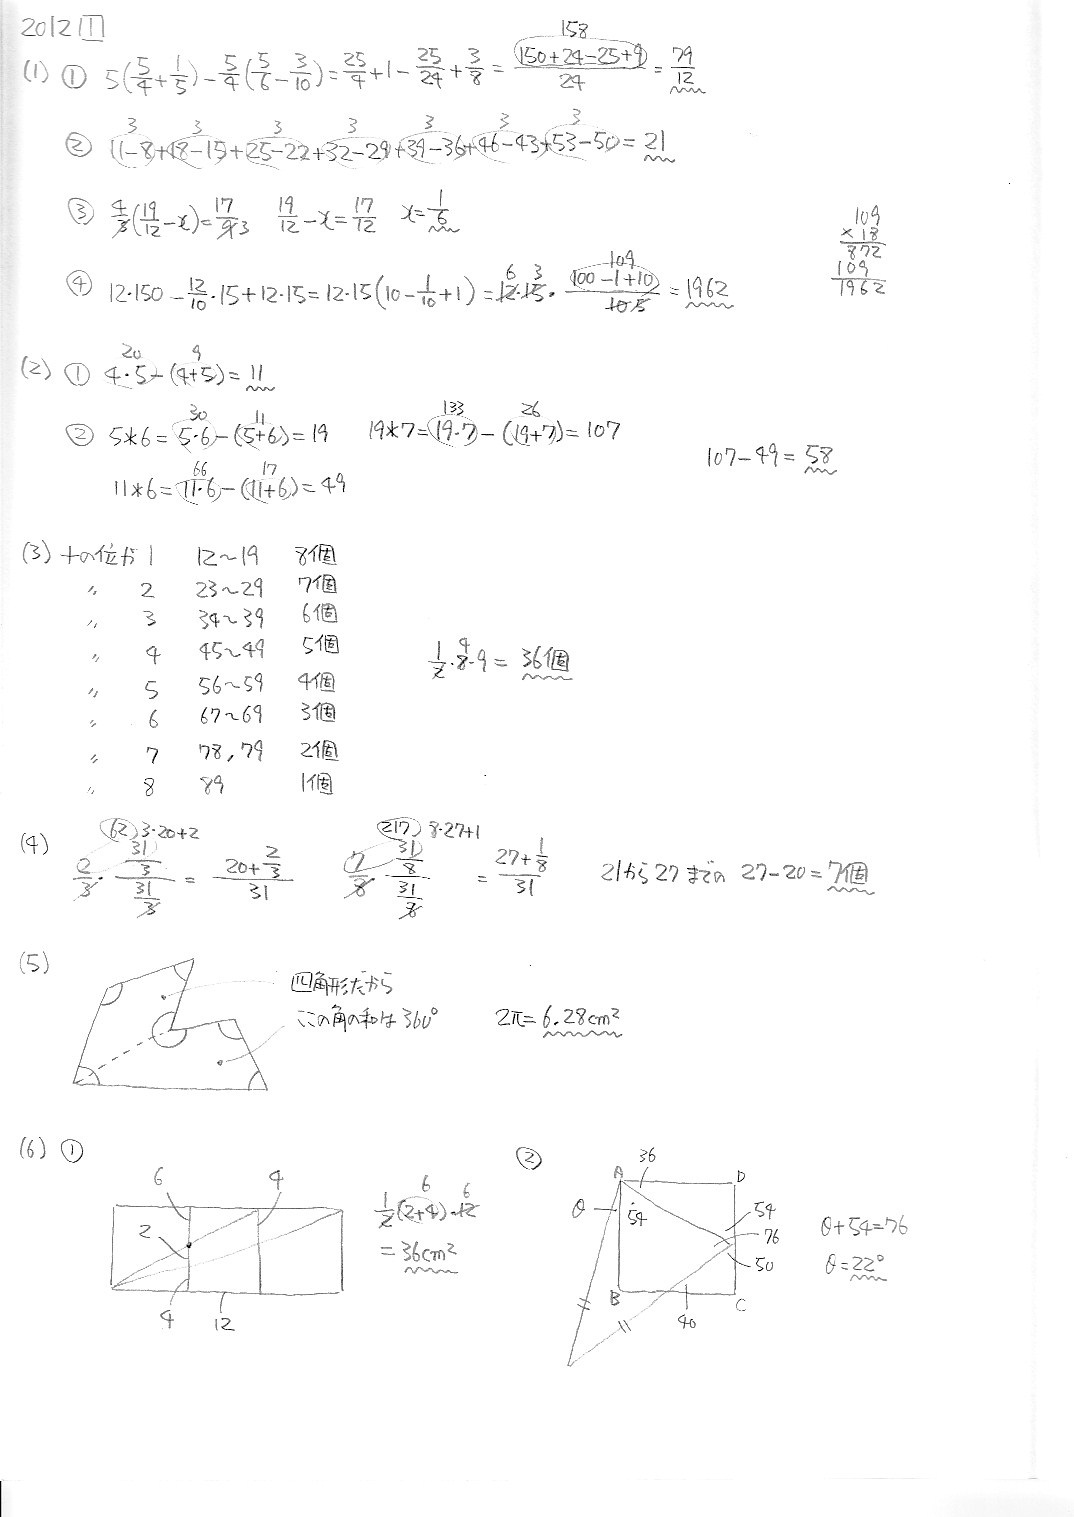 2012 1
(1) ① 5(5/4+1/5)-5/4(5/6-3/10)=25/4+1-25/24+3/8=(150+24-25+9)/24=79/12
158
② 11-8+18-15+25-22+32-29+39-36+46-43+53-50=21
3 3 3 3 3 3 3
③ 4/3(19/12-x)=17/9 3 19/12-x=17/12 x=1/6
④ 12·150-12/10·15+12·15=12·15(10-1/10+1)=12·15·(100-1+10)/10 5=1962
6 3 109
109
×18
872
109
1962
(2) ① 4·5-(4+5)=11
20 9
② 5*6=5·6-(5+6)=19 19*7=(19·7)-(19+7)=107
30 11 133 26
11*6=11·6-(11+6)=49
66 17
107-49=58
(3) 十の位が 1 12～19 8個
〃 2 23～29 7個
〃 3 34～39 6個
〃 4 45～49 5個
〃 5 56～59 4個
〃 6 67～69 3個
〃 7 78,79 2個
〃 8 89 1個
1/2·8·9=36個
4
(4) 62 3·20+2 217 8·27+1
2/3·(31/3)/(31/3)=(20+2/3)/31 7/8·(31/8)/(31/8)=(27+1/8)/31 21から27までの 27-20=7個
(5) 四角形だから
ここの角の和は360° 2π=6.28cm²
(6) ①
6 4
2
4 12
1/2(2+4)·12
6 6
=36cm²
②
A 36 D
θ 54 54
76
50
B 40 C
θ+54=76
θ=22°